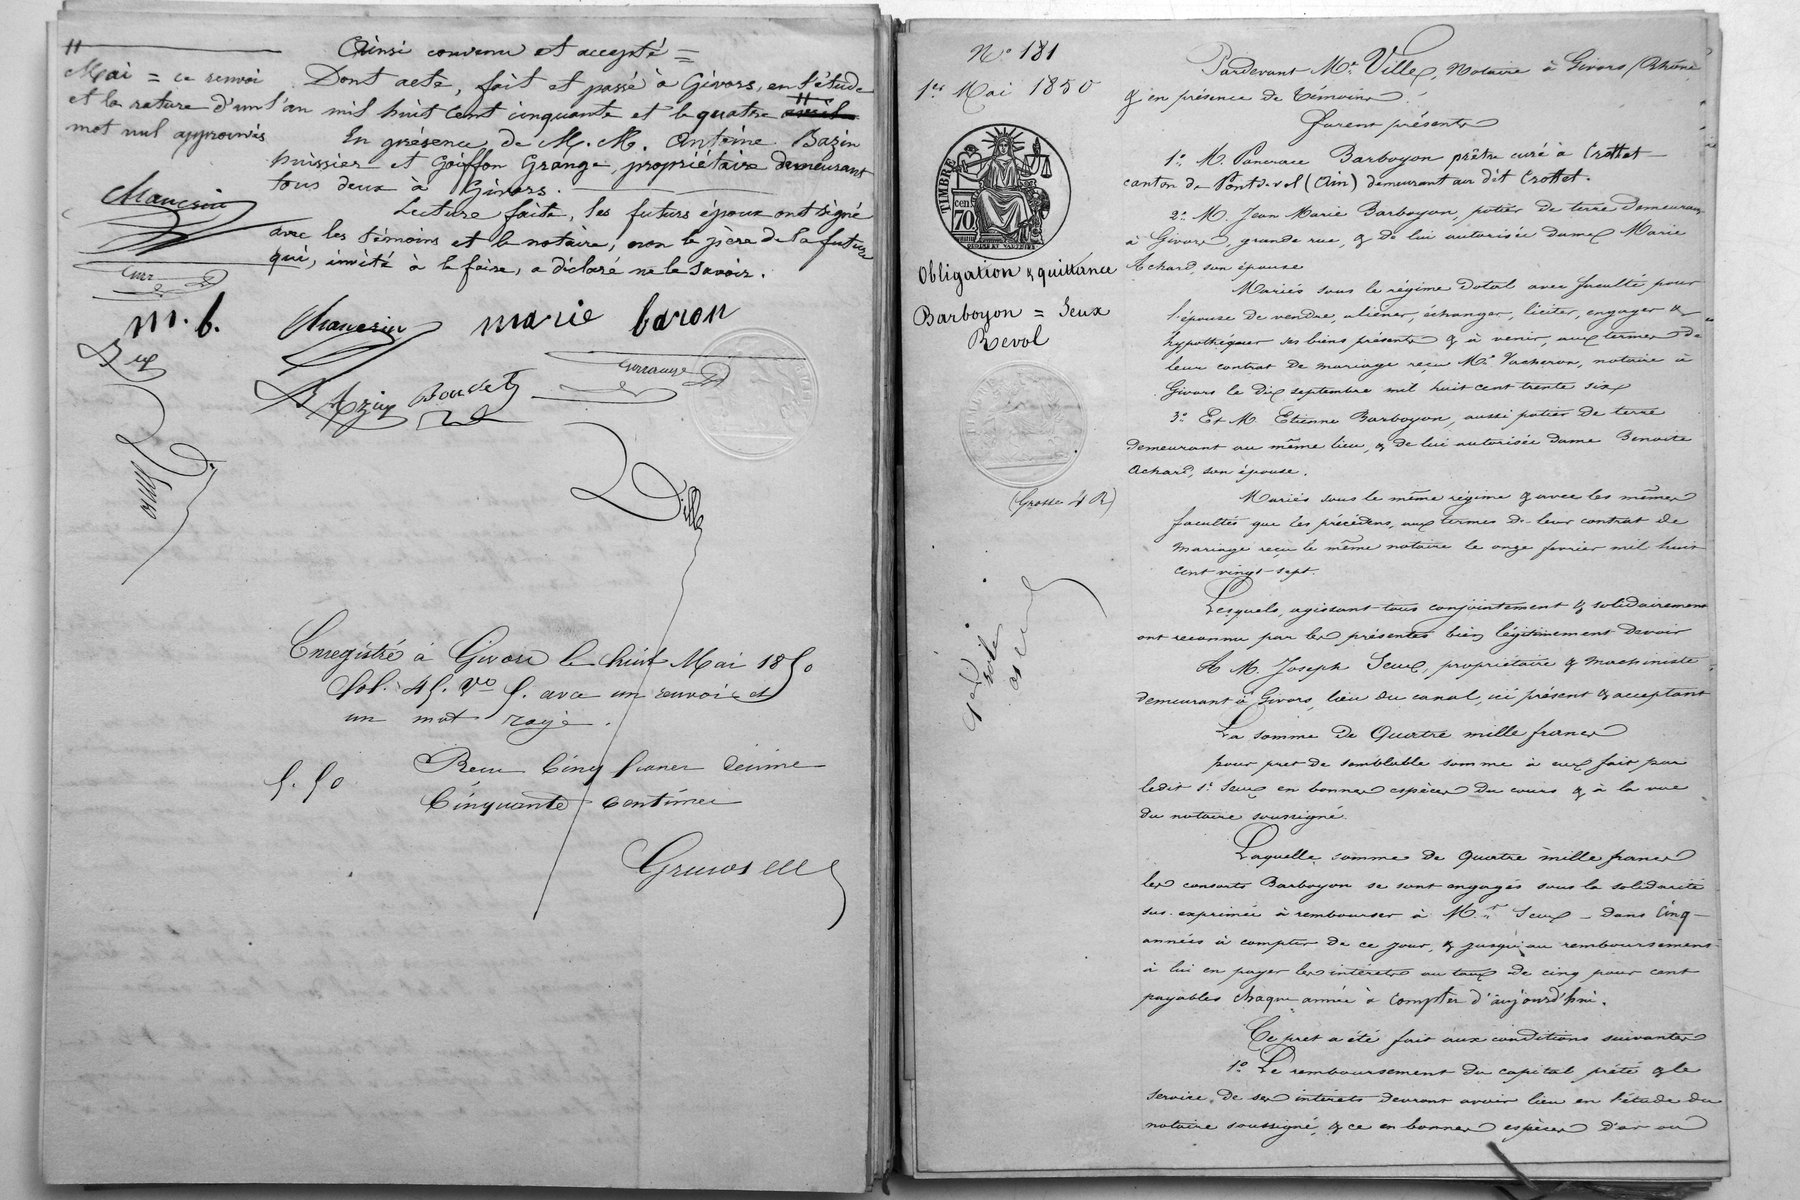 Ainsi convenu et accepté =
Dont acte, fait et passé à Givors, en l'étude
l'an mil huit cent cinquante et le quatre avril
En présence de M. M. Antoine Bazin
huissier et Gouffon Grange, propriétaire demeurant
tous deux à Givors.
Lecture faite, les futurs époux ont signé
avec les témoins et le notaire, non le père de la future
qui, invité à le faire, a déclaré ne le savoir.
Mai = ce renvoi
et la rature d'un
mot nul approuvés
m. b.
marie baron
Bazin
Ville
Enregistré à Givors le huit Mai 1850
fol. 45. Vo 5. avec un renvoi et
un mot rayé.
5.50
Reçu Cinq francs décime
Cinquante centimes
No 181
1er Mai 1850
TIMBRE
70 cen
Obligation & quittance
Barboyon = Seux
Revol
(Grosse 4 R)
Pardevant Me Ville, Notaire à Givors (Rhône
& en présence de témoins
furent présents
1o M. Pancrace Barboyon prêtre curé à Crottet
canton de Pontdevel (Ain) demeurant au dit Crottet.
2o M. Jean Marie Barboyon, potier de terre demeurant
à Givors, grande rue, & de lui autorisée dame Marie
Achard, son épouse
Mariés sous le régime dotal avec faculté pour
l'épouse de vendre, aliener, échanger, liciter, engager &
hypothéquer ses biens présents & à venir, aux termes de
leur contrat de mariage reçu Me Vacheron, notaire à
Givors le dix septembre mil huit cent trente six
3o Et M. Etienne Barboyon, aussi potier de terre
demeurant au même lieu, & de lui autorisée dame Benoite
Achard, son épouse.
Mariés sous le même régime & avec les mêmes
facultés que les précédens, aux termes de leur contrat de
mariage reçu le même notaire le onze fevrier mil huit
cent vingt-sept.
Lesquels, agissant tous conjointement & solidairement
ont reconnu par les présentes bien légitimement devoir
A M. Joseph Seux, propriétaire & machiniste
demeurant à Givors, lieu du canal, ici présent & acceptant
La somme de Quatre mille francs
pour pret de semblable somme à eux fait par
ledit sr Seux en bonnes espèces du cours & à la vue
du notaire soussigné.
Laquelle somme de Quatre mille francs
les consorts Barboyon se sont engagés sous la solidarité
sus-exprimée à rembourser à Mr Seux – dans Cinq –
années à compter de ce jour, & jusqu'au remboursement
à lui en payer les intérêts au taux de cinq pour cent
payables chaque année à compter d'aujourd'hui.
Ce pret a été fait aux conditions suivantes
1o Le remboursement du capital prêté & le
service de ses intérêts devront avoir lieu en l'étude du
notaire soussigné, & ce en bonnes espèces d'or ou